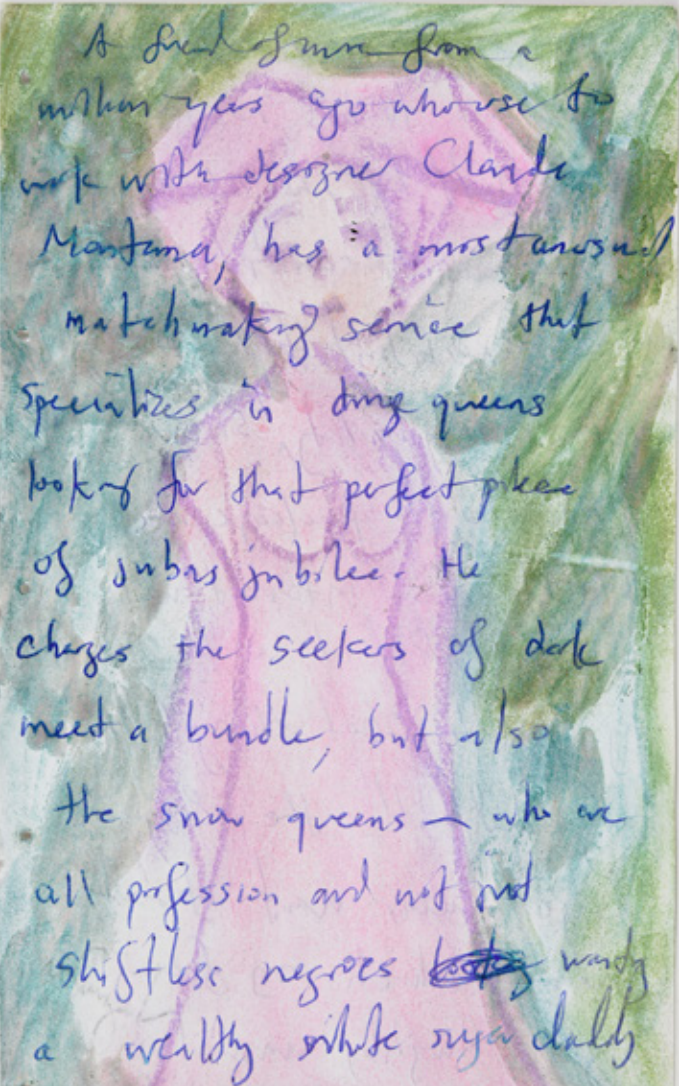 A friend of mine from a
million years ago who use to
work with designer Claude
Montana, has a most unusual
matchmaking service that
specializes in dinge queens
looking for that perfect piece
of jubas jubilee. He
charges the seekers of dark
meat a bundle, but also
the snow queens — who are
all profession and not just
shiftless negroes wanting
a wealthy white sugar daddy